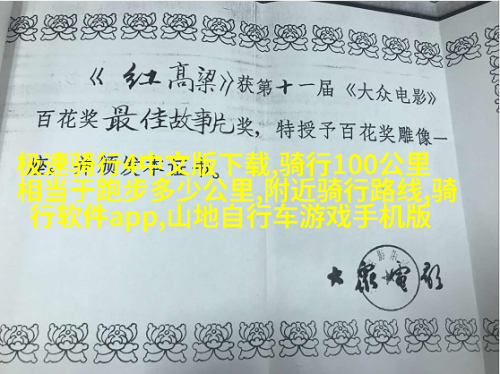 《红高粱》获第十一届《大众电影》
百花奖最佳故事片奖，特授予百花奖雕像一
座。特颁发本证书。
极速骑行4中文版下载,骑行100公里
相当于跑步多少公里,附近骑行路线,骑
行软件app,山地自行车游戏手机版
大众电影